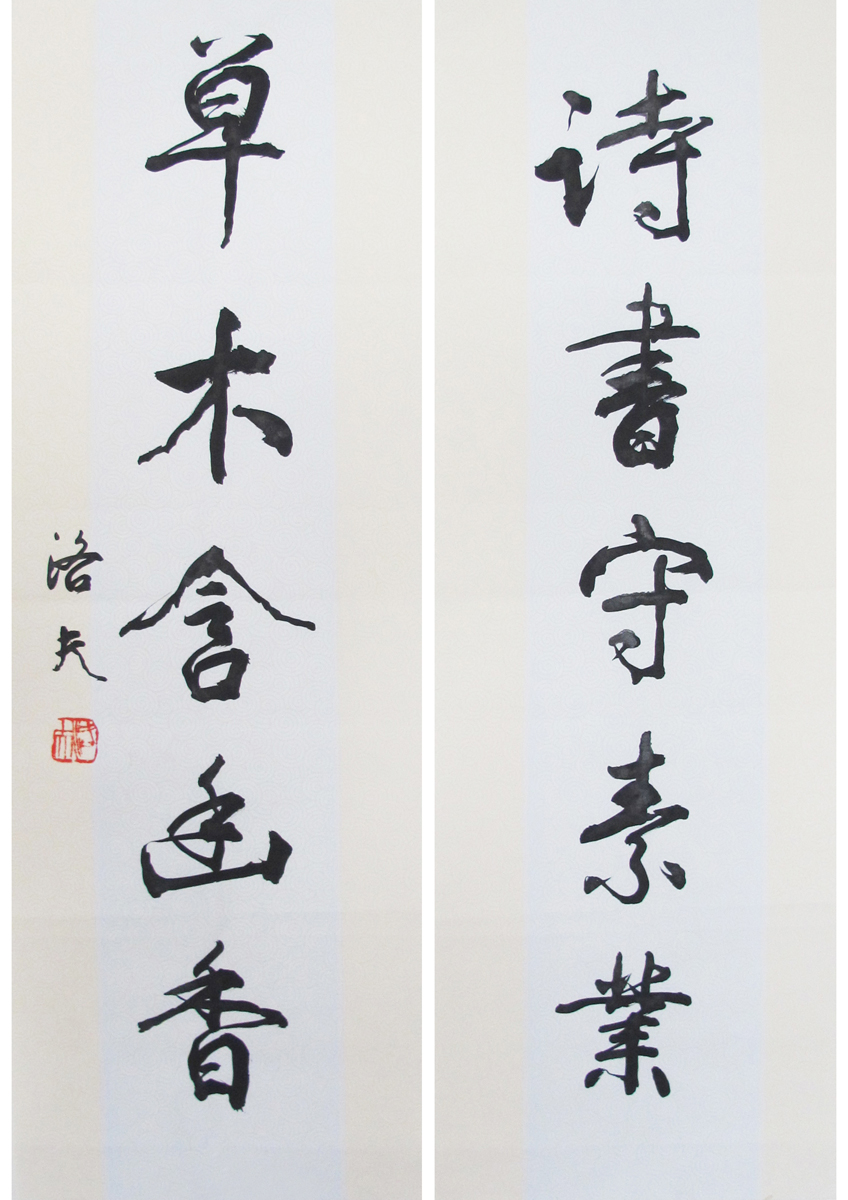 诗書守素業
草木含幽香
洛夫